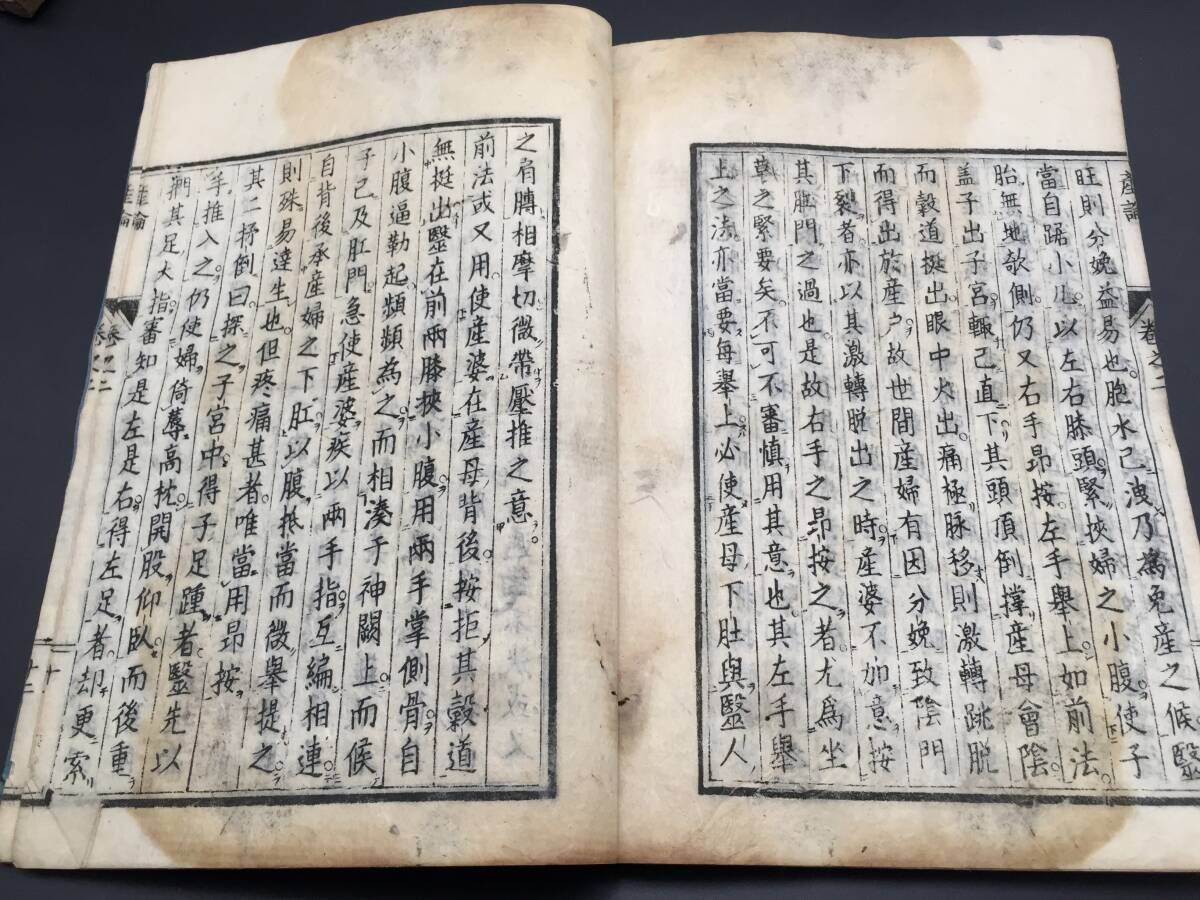 産論
卷之二
旺則分娩益易也胞水已洩乃為免産之候毉
當自踞小儿以左右膝頭緊挾婦之小腹使子
胎無地欹側仍又右手昂按左手舉上如前法
盖子出子宮輙已直下其頭頂倒撑産母會陰
而穀道挺出眼中火出痛極脉移則激轉跳脱
而得出於産户故世間産婦有因分娩致陰門
下裂者亦以其激轉脱出之時産婆不加意按
其肛門之過也是故右手之昂按之者尤爲坐
草之緊要矣不可不審慎用其意也其左手舉
上之法亦當要每舉上必使産母下肚與毉人
之肩膊相摩切微帶壓推之意
前法或又用使産婆在産母背後按拒其穀道
無挺出毉在前兩膝挾小腹用兩手掌側骨自
小腹逼勒起頻頻為之而相湊于神闕上而候
子已及肛門急使産婆疾以兩手指互編相連
自背後承産婦之下肛以腹抵當而微舉提之
則殊易達生也但疼痛甚者唯當用昂按
其二拯倒曰探之子宮中得子足踵者毉先以
手推入之仍使婦倚蓐高枕開股仰臥而後重
捫其足大指審知是左是右得左足者却更索
産論
卷之二